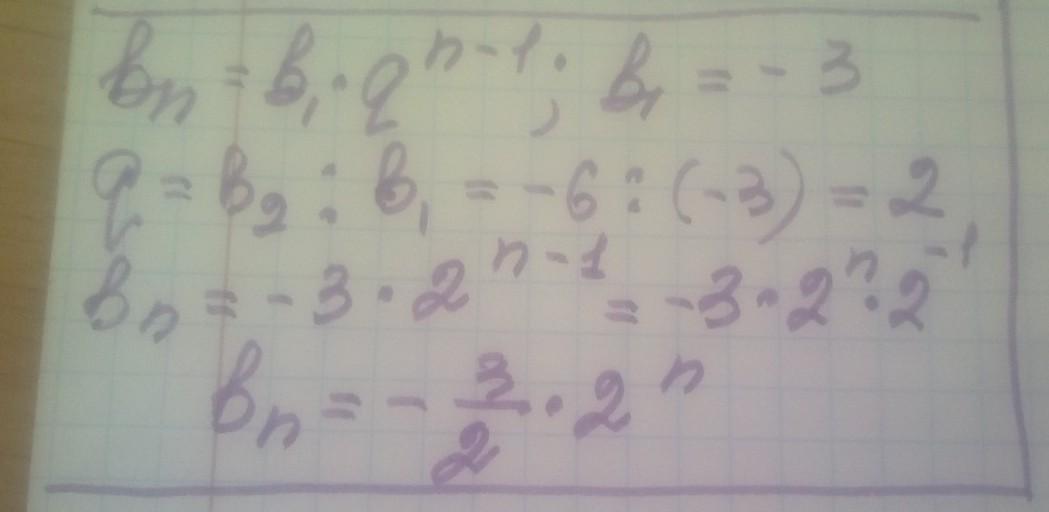 bₙ = b₁ · qⁿ⁻¹; b₁ = - 3
q = b₂ : b₁ = -6 : (-3) = 2
bₙ = - 3 · 2ⁿ⁻¹ = -3 · 2ⁿ · 2⁻¹
bₙ = - 3/2 · 2ⁿ